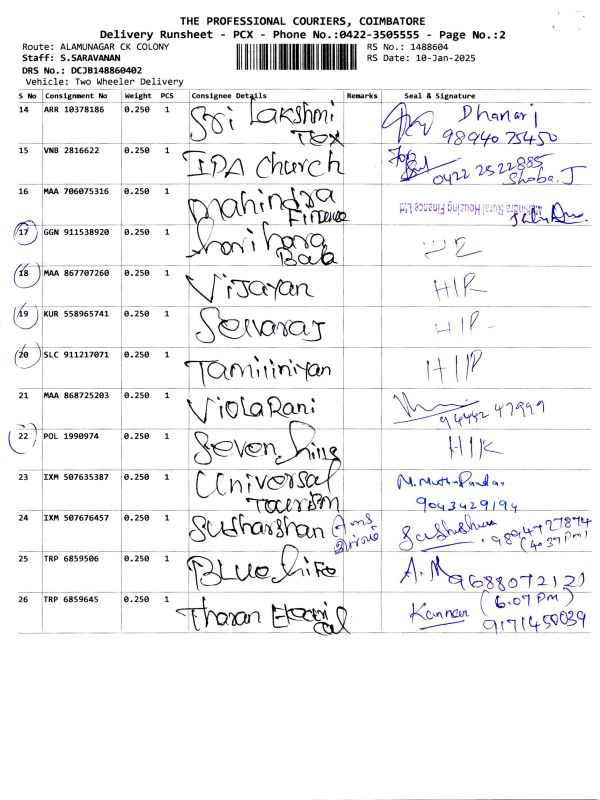 THE PROFESSIONAL COURIERS, COIMBATORE
Delivery Runsheet - PCX - Phone No.:0422-3505555 - Page No.:2
Route: ALAMUNAGAR CK COLONY
RS No.: 1488604
Staff: S.SARAVANAN
RS Date: 10-Jan-2025
DRS No.: DCJB148860402
Vehicle: Two Wheeler Delivery
S No Consignment No Weight PCS Consignee Details Remarks Seal & Signature
14 ARR 10378186 0.250 1 Sri Lakshmi Tex Dhanraj
9894075450
15 VNB 2816622 0.250 1 IPA Church
0422 2522885
Shoba.J
16 MAA 706075316 0.250 1 Mahindra Finance Rural Housing Finance Ltd
17 GGN 911538920 0.250 1 Hari hara Bala
18 MAA 867707260 0.250 1 Vijayan
19 KUR 558965741 0.250 1 Selvaraj
20 SLC 911217071 0.250 1 Tamiliniyan
21 MAA 868725203 0.250 1 Viola Rani
94442 47999
22 POL 1990974 0.250 1 Seven hills
23 IXM 507635387 0.250 1 Universal Tourism
9043429194
24 IXM 507676457 0.250 1 Sudharshan
9894727874
(4.37 Pm)
25 TRP 6859506 0.250 1 Blue hire A.M 9688072121
26 TRP 6859645 0.250 1 Tharan Kannan (6.07 Pm)
9171450039